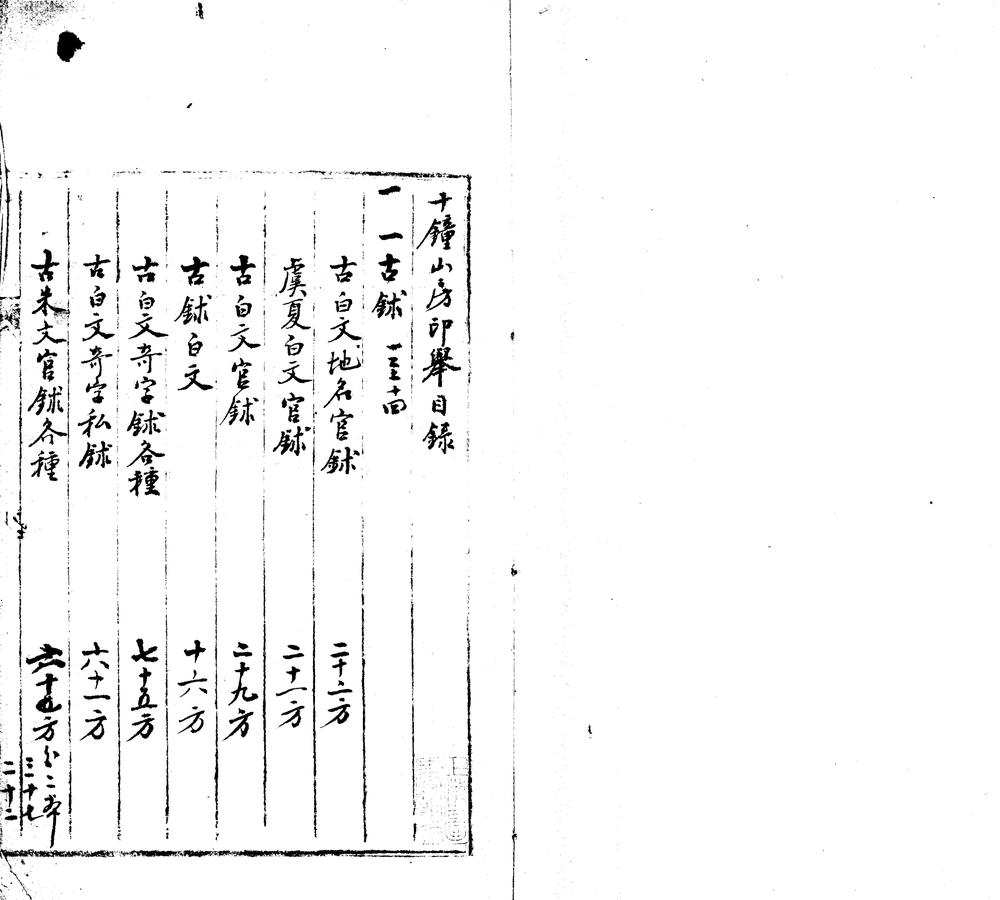 十鐘山房印舉目錄
一 一古鉥 一至十四
古白文地名官鉥 二十二方
虞夏白文官鉥 二十一方
古白文官鉥 二十九方
古鉥白文 十六方
古白文奇字鉥各種 七十五方
古白文奇字私鉥 六十一方
古朱文官鉥各種 十方 分二本
三十七
二十二